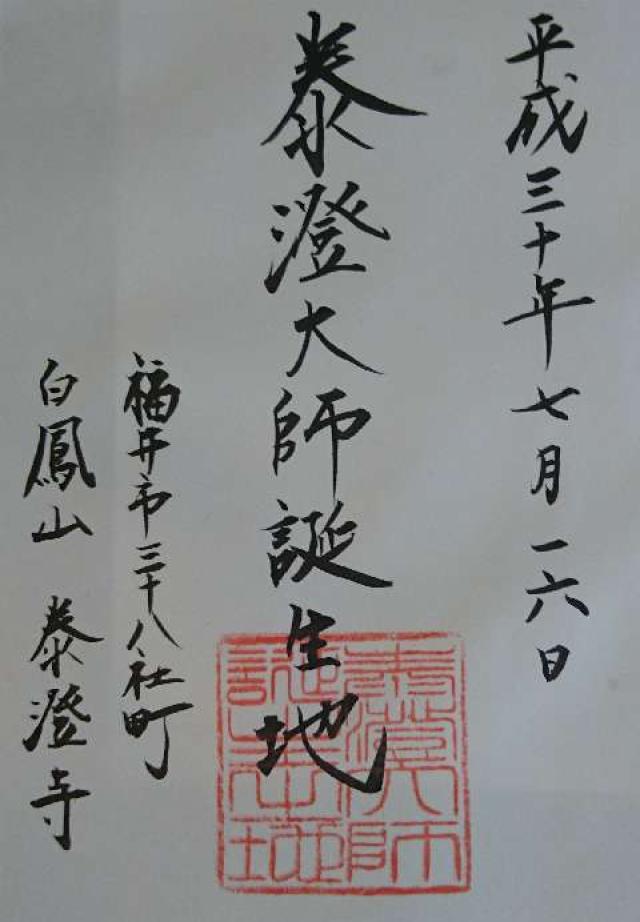 平成三十年七月一六日
泰澄大師誕生地
福井市三十八社町
白鳳山 泰澄寺
泰澄大師
誕生地